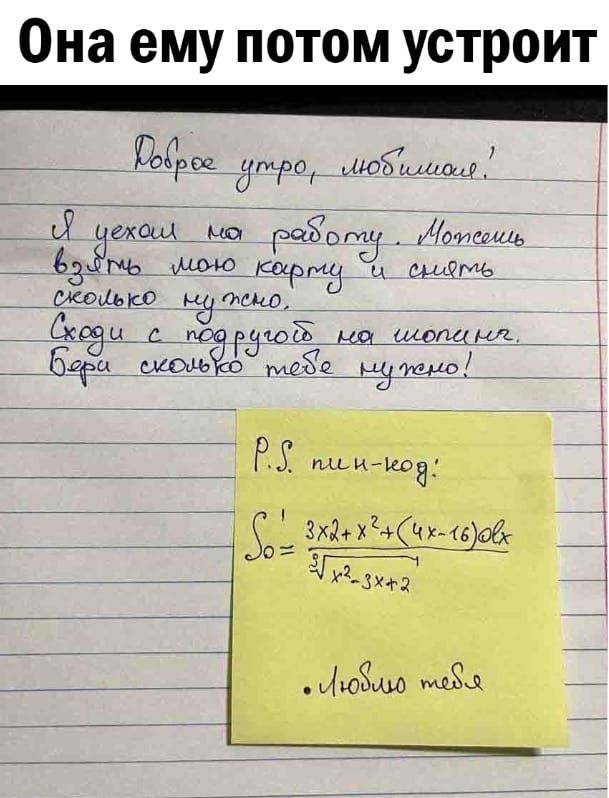 Она ему потом устроит
Доброе утро, любимая!
Я уехал на работу. Можешь
взять мою карту и снять
сколько нужно.
Сходи с подругой на шопинг.
Бери сколько тебе нужно!
P.S. пин-код:
∫₀¹ = 3x2+x²+(4x-16)dx
∛x²-3x+2
• Люблю тебя